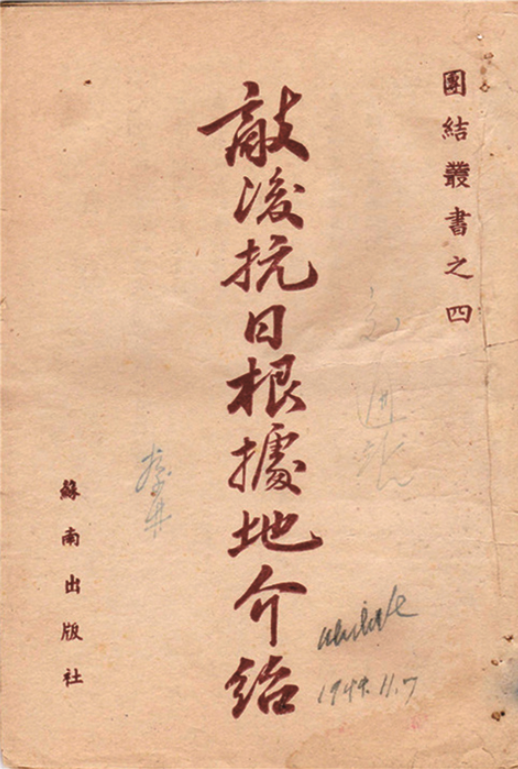 團結叢書之四
敵後抗日根據地介紹
蘇南出版社
1944.11.7